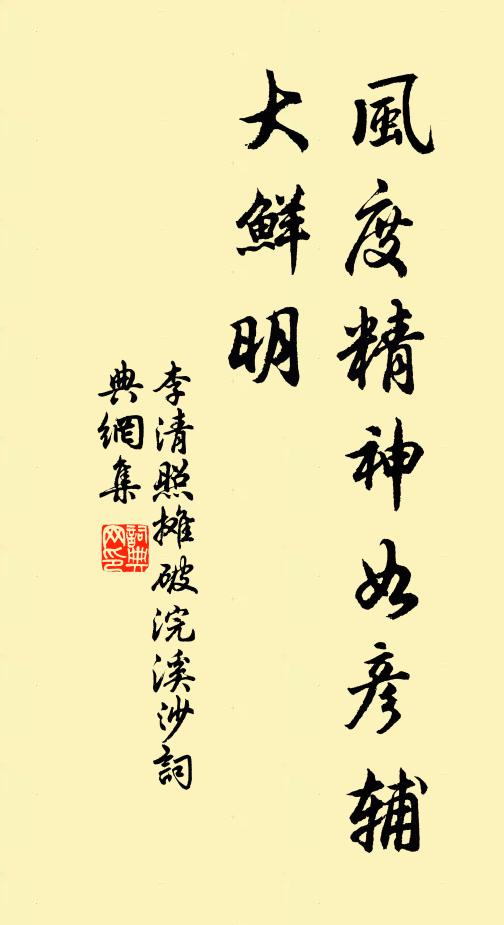 風度精神如彦辅
大鮮明
李清照摊破浣溪沙詞
典網集
詞典
网印